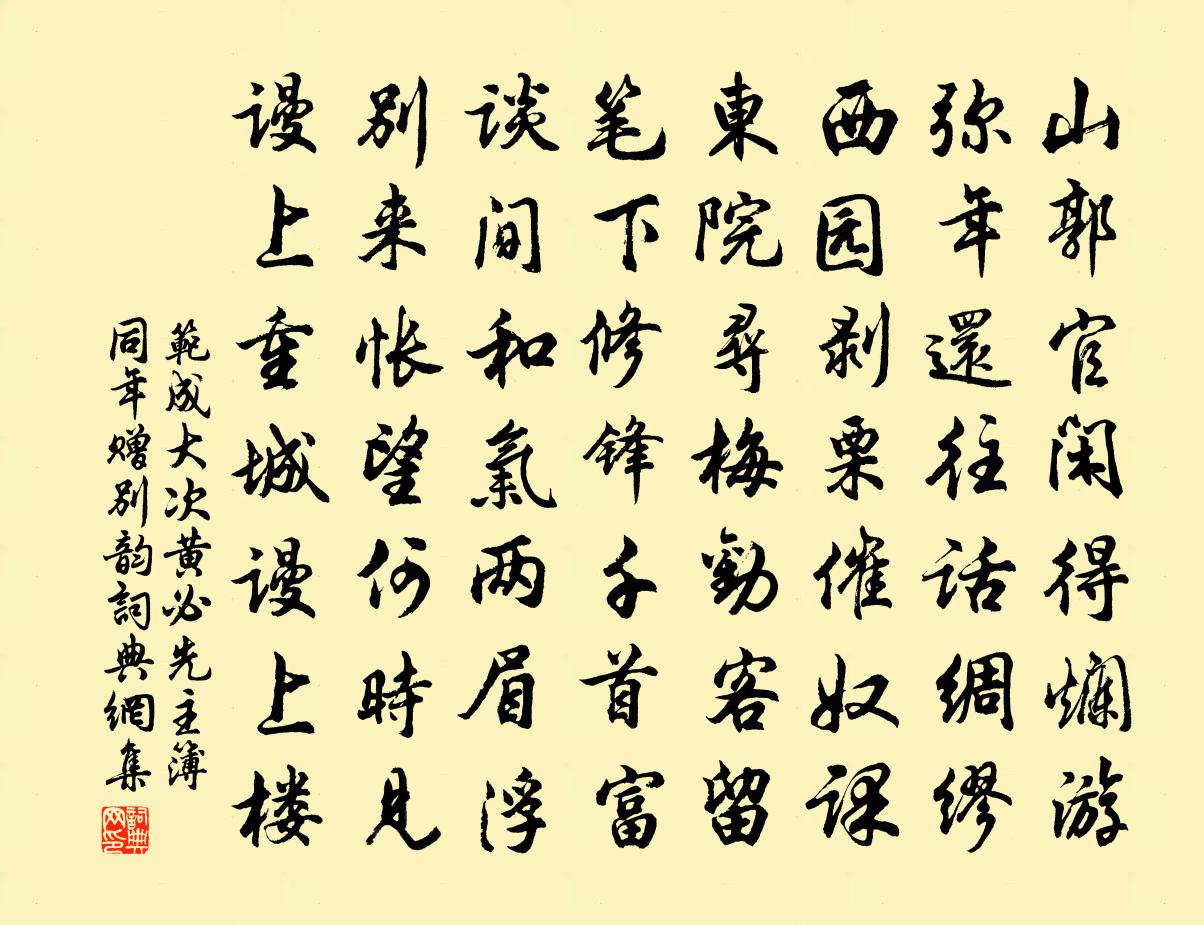 山郭官闲得爛游
弥年還往话绸缪
西园剥栗催奴课
東院尋梅勸客留
笔下修锋千首富
谈间和氣两眉浮
别来怅望何時見
谩上重城谩上楼
範成大次黄必先主簿
同年赠别韵詞典網集
詞典
网印